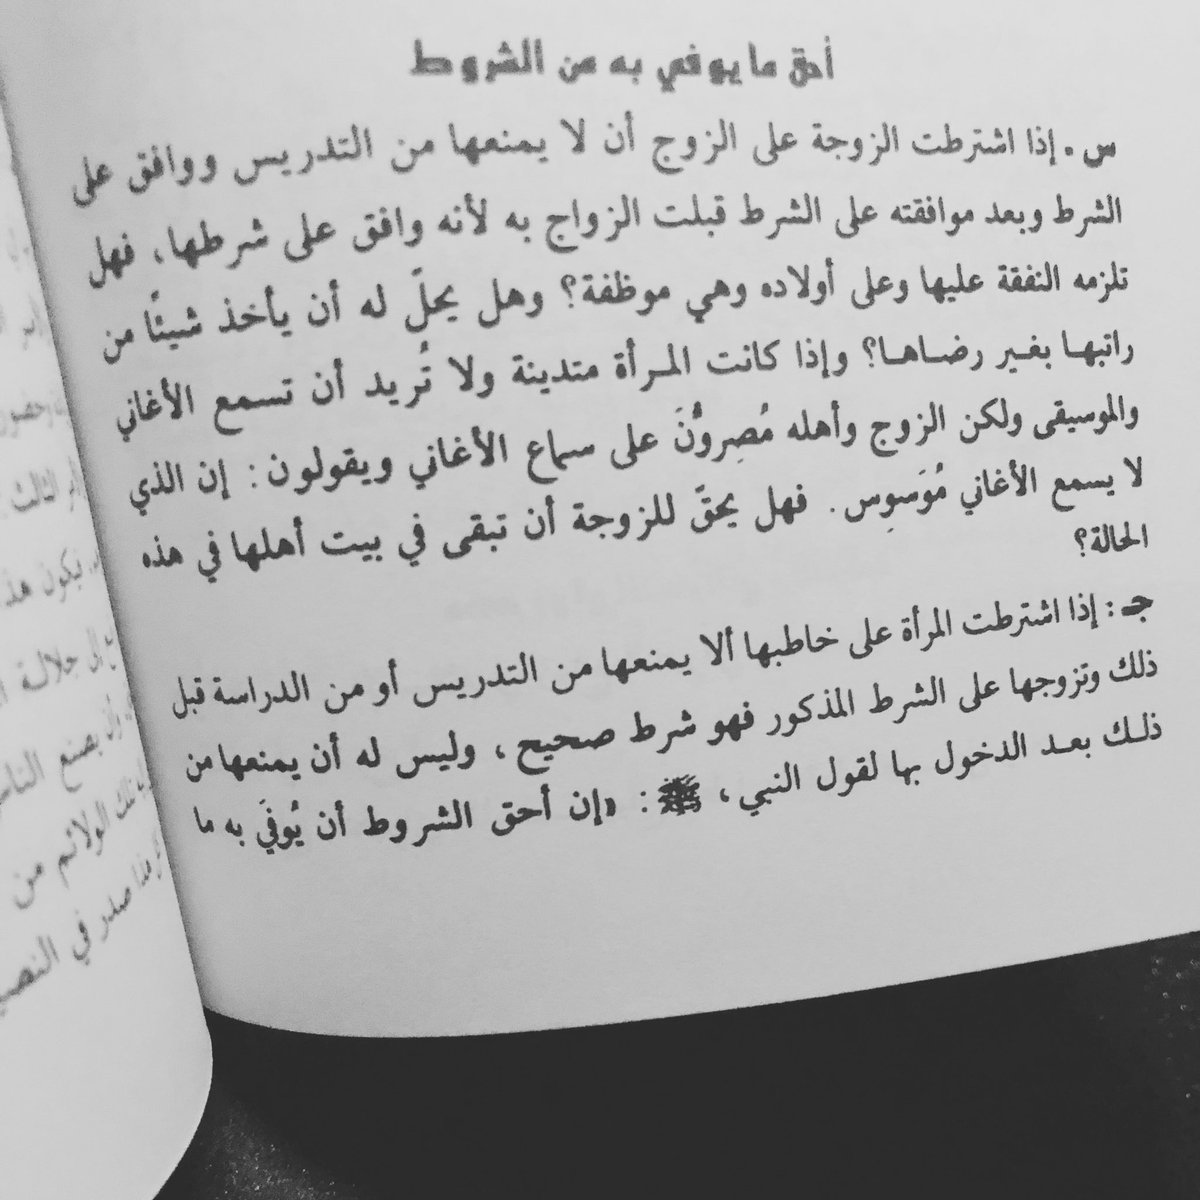 أحق ما يوفي به من الشروط
س . إذا اشترطت الزوجة على الزوج أن لا يمنعها من التدريس ووافق على
الشرط وبعد موافقته على الشرط قبلت الزواج به لأنه وافق على شرطها، فهل
تلزمه النفقة عليها وعلى أولاده وهي موظفة؟ وهل يحلّ له أن يأخذ شيئًا من
راتبها بغير رضاها؟ وإذا كانت المرأة متدينة ولا تُريد أن تسمع الأغاني
والموسيقى ولكن الزوج وأهله مُصِرُّونَ على سماع الأغاني ويقولون: إن الذي
لا يسمع الأغاني مُوَسوِس. فهل يحقّ للزوجة أن تبقى في بيت أهلها في هذه
الحالة؟
جـ : إذا اشترطت المرأة على خاطبها ألا يمنعها من التدريس أو من الدراسة قبل
ذلك وتزوجها على الشرط المذكور فهو شرط صحيح، وليس له أن يمنعها من
ذلك بعد الدخول بها لقول النبي، ﷺ: «إن أحق الشروط أن يُوفَي به ما
الثالث
يكون هذ
إلى جلالة
يصنع الناس
تلك الولائم من
هذا صدر في النصي